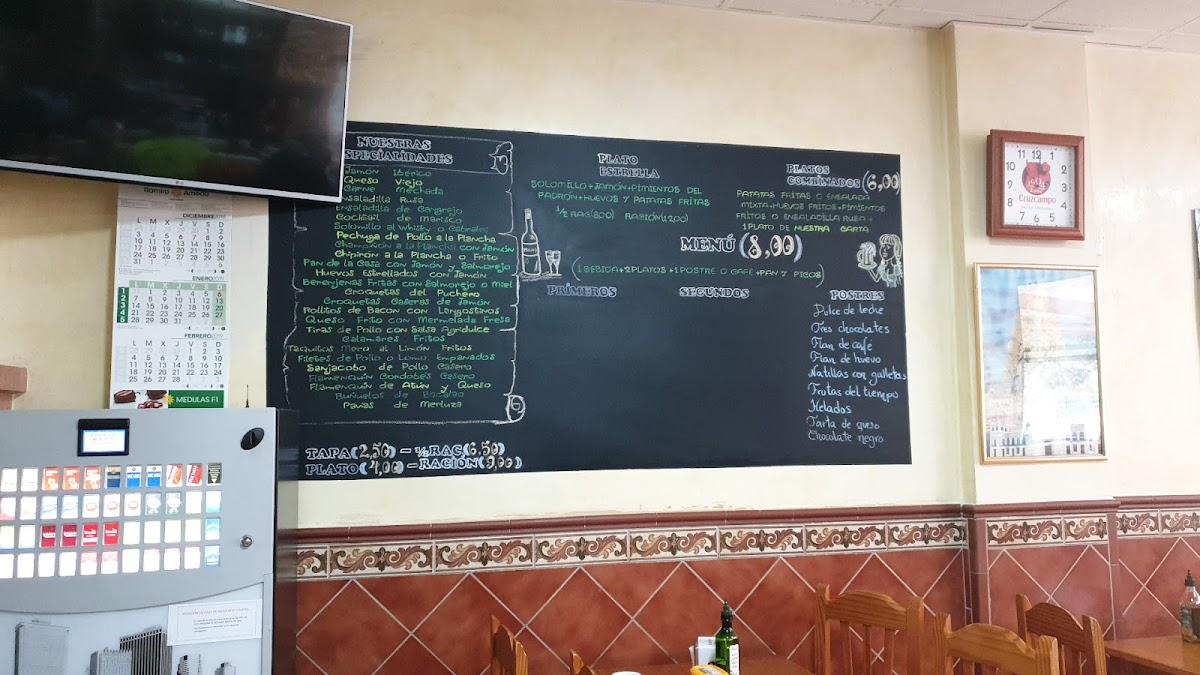 NUESTRAS
ESPECIALIDADES
JAMÓN IBÉRICO
QUESO VIEJO
CARNE MECHADA
ENSALADILLA RUSA
ENSALADILLA DE CANGREJO
COCKTAIL DE MARISCO
SOLOMILLO AL WHISKY O CABRALES
PECHUGA DE POLLO A LA PLANCHA
CHAMPIÑON A LA PLANCHA CON JAMÓN
CHIPIRÓN A LA PLANCHA O FRITO
PAN DE LA CASA CON JAMÓN Y SALMOREJO
HUEVOS ESTRELLADOS CON JAMÓN
BERENJENAS FRITAS CON SALMOREJO O MIEL
CROQUETAS DEL PUCHERO
CROQUETAS CASERAS DE JAMÓN
ROLLITOS DE BACON CON LANGOSTINOS
QUESO FRITO CON MERMELADA FRESA
TIRAS DE POLLO CON SALSA AGRIDULCE
CALAMARES FRITOS
TAQUITOS MERO AL LIMÓN FRITOS
FILETES DE POLLO O LOMO EMPANADOS
SANJACOBO DE POLLO CASERO
FLAMENQUIN CORDOBES CASERO
FLAMENQUIN DE ATÚN Y QUESO
BUÑUELOS DE BACALAO
PAVIAS DE MERLUZA
TAPA(2,50) - ½RAC(6.50)
PLATO(4,00) - RACIÓN(9,00)
PLATO
ESTRELLA
SOLOMILLO+JAMÓN+PIMIENTOS DEL
PADRÓN+HUEVOS Y PATATAS FRITAS
½RAC(800) RACIÓN(1200)
PLATOS
COMBINADOS(6,00)
PATATAS FRITAS O ENSALADA
MIXTA+HUEVOS FRITOS+PIMIENTOS
FRITOS O ENSALADILLA RUSA+
1 PLATO DE NUESTRA CARTA
MENÚ (8,00)
(1 BEBIDA+2PLATOS+1POSTRE O CAFÉ+PAN Y PICOS)
PRÍMEROS
SEGUNDOS
POSTRES
Dulce de leche
Tres chocolates
Flan de café
Flan de huevo
Natillas con galletas
Frutas del tiempo
Helados
Tarta de queso
Chocolate negro
Ramiro Arnedo
DICIEMBRE 2018
L M X J V S D
1 2
3 4 5 6 7 8 9
10 11 12 13 14 15 16
17 18 19 20 21 22 23
24 25 26 27 28 29 30
31
ENERO 2019
L M X J V S D
1 1 2 3 4 5 6
2 7 8 9 10 11 12 13
3 14 15 16 17 18 19 20
4 21 22 23 24 25 26 27
5 28 29 30 31
FEBRERO 2019
L M X J V S D
1 2 3
4 5 6 7 8 9 10
11 12 13 14 15 16 17
18 19 20 21 22 23 24
25 26 27 28
MEDULAS F1
12 1 2 3 4 5 6 7 8 9 10 11
1904
Cruzcampo